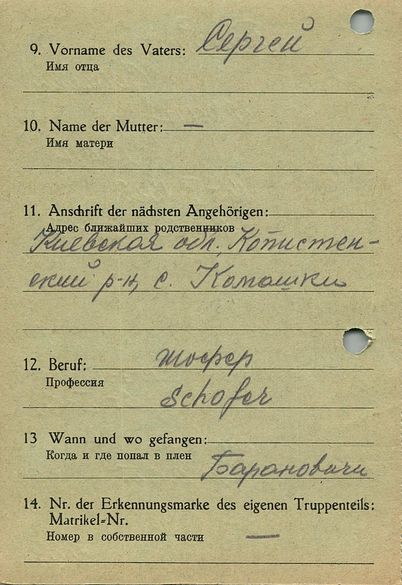 9. Vorname des Vaters: Сергей
Имя отца
10. Name der Mutter: —
Имя матери
11. Anschrift der nächsten Angehörigen:
Адрес ближайших родственников
Киевская обл., Копистен-
ский р-н, с. Комашки
12. Beruf: шофер
Профессия
Schofer
13 Wann und wo gefangen:
Когда и где попал в плен
Барановичи
14. Nr. der Erkennungsmarke des eigenen Truppenteils:
Matrikel-Nr.
Номер в собственной части —